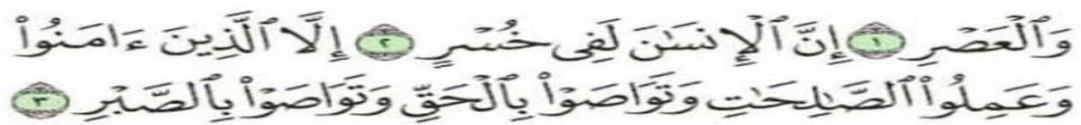 وَٱلْعَصْرِ ١ إِنَّ ٱلْإِنسَٰنَ لَفِى خُسْرٍ ٢ إِلَّا ٱلَّذِينَ ءَامَنُوا۟
وَعَمِلُوا۟ ٱلصَّٰلِحَٰتِ وَتَوَاصَوْا۟ بِٱلْحَقِّ وَتَوَاصَوْا۟ بِٱلصَّبْرِ ٣